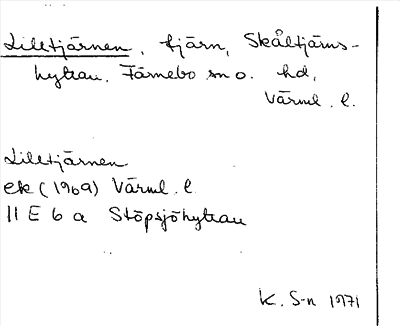 Lilltjärnen, tjärn, Skåltjärns-
hyttan. Färnebo sn o. hd,
Värml. l.
Lilltjärnen
ek (1969) Värml. l
11 E 6 a Stöpsjöhyttan
K. S-n 1971